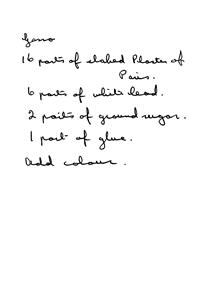 Gesso
16 parts of slaked Plaster of
Paris.
6 parts of white lead.
2 parts of ground sugar.
1 part of glue.
Add colour.